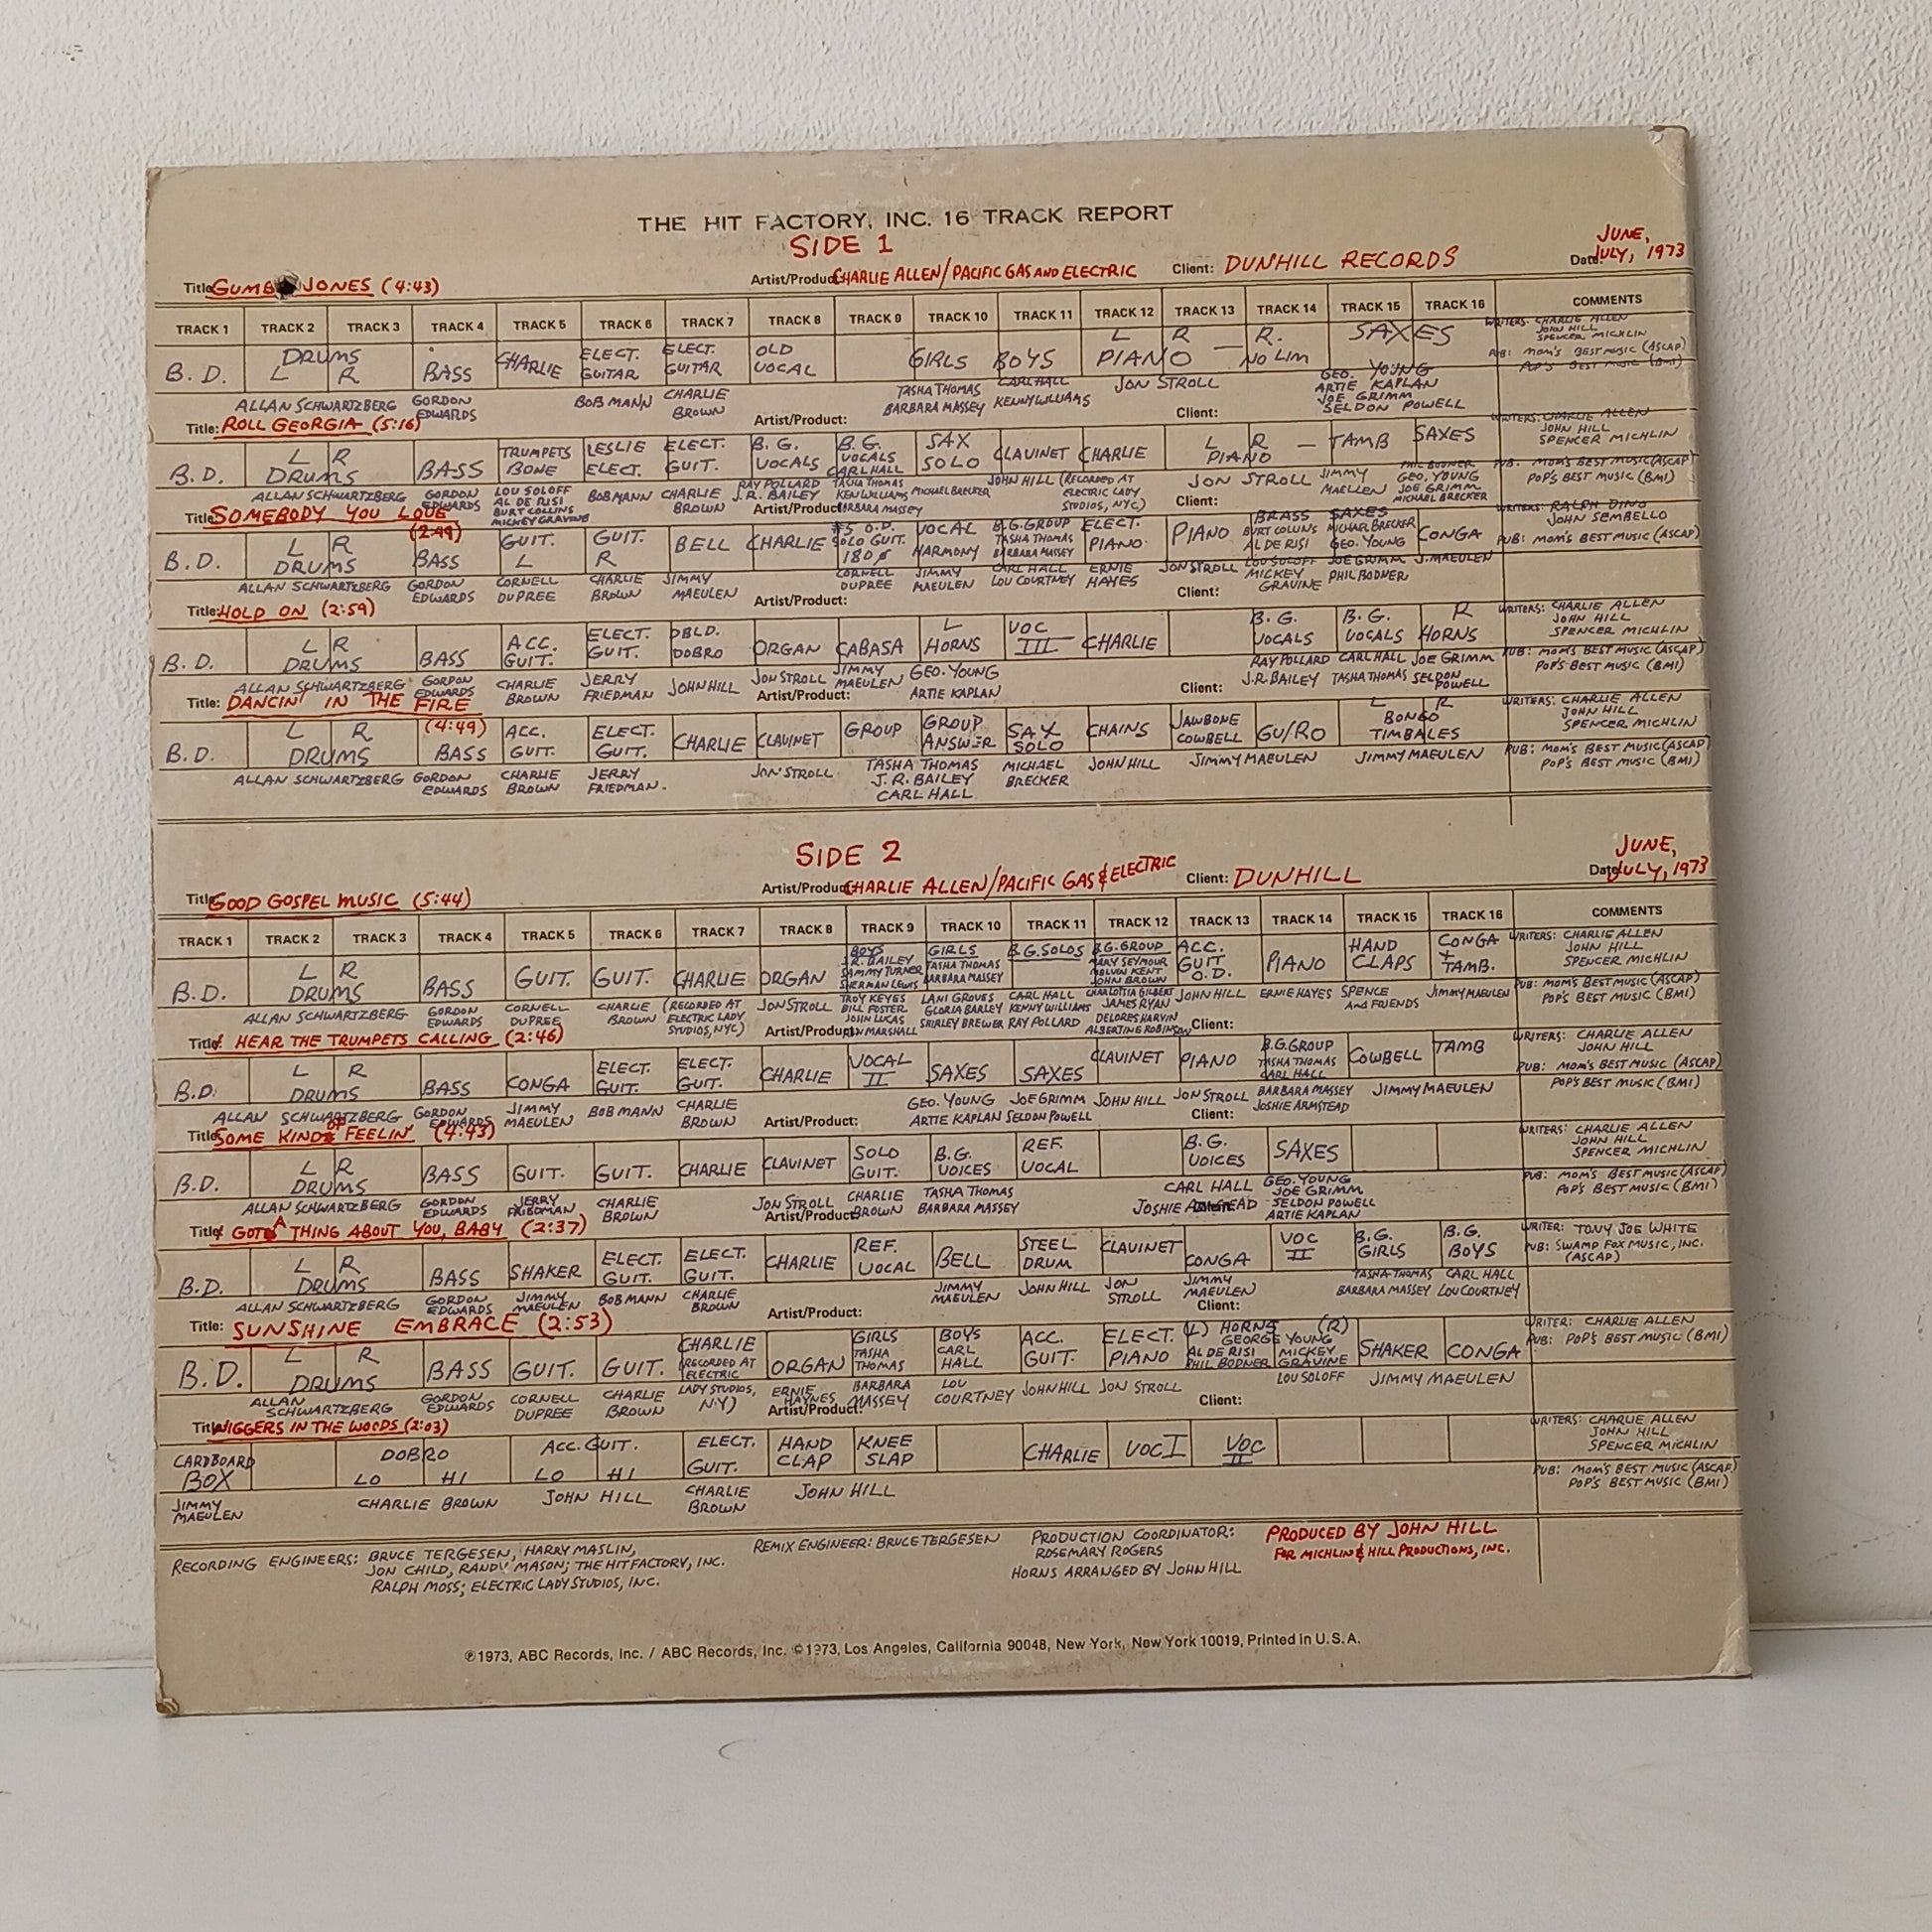 THE HIT FACTORY, INC. 16 TRACK REPORT
SIDE 1
Title: GUMBO JONES (4:43) Artist/Product: CHARLIE ALLEN/PACIFIC GAS AND ELECTRIC Client: DUNHILL RECORDS Date: JUNE, JULY, 1973
TRACK 1 TRACK 2 TRACK 3 TRACK 4 TRACK 5 TRACK 6 TRACK 7 TRACK 8 TRACK 9 TRACK 10 TRACK 11 TRACK 12 TRACK 13 TRACK 14 TRACK 15 TRACK 16 COMMENTS
B.D. DRUMS L R BASS CHARLIE ELECT. GUITAR ELECT. GUITAR OLD VOCAL GIRLS BOYS L R PIANO — R. NO LIM SAXES WRITERS: CHARLIE ALLEN JOHN HILL SPENCER MICHLIN
PUB: MOM'S BEST MUSIC (ASCAP) POP'S BEST MUSIC (BMI)
ALLAN SCHWARTZBERG GORDON EDWARDS BOB MANN CHARLIE BROWN TASHA THOMAS BARBARA MASSEY CARL HALL KENNY WILLIAMS JON STROLL GEO. YOUNG ARTIE KAPLAN JOE GRIMM SELDON POWELL
Title: ROLL GEORGIA (5:16) Artist/Product: Client:
B.D. L R DRUMS BASS TRUMPETS BONE LESLIE ELECT. ELECT. GUIT. B.G. VOCALS B.G. VOCALS CARL HALL SAX SOLO CLAVINET CHARLIE L R PIANO — TAMB SAXES WRITERS: CHARLIE ALLEN JOHN HILL SPENCER MICHLIN
PUB: MOM'S BEST MUSIC (ASCAP) POP'S BEST MUSIC (BMI)
ALLAN SCHWARTZBERG GORDON EDWARDS LOU SOLOFF AL DE RISI BURT COLLINS MICKEY GRAVINE BOB MANN CHARLIE BROWN RAY POLLARD J.R. BAILEY TASHA THOMAS KEN WILLIAMS BARBARA MASSEY MICHAEL BRECKER JOHN HILL (RECORDED AT ELECTRIC LADY STUDIOS, NYC) JON STROLL JIMMY MAELLEN PHIL BODNER GEO. YOUNG JOE GRIMM MICHAEL BRECKER
Title: SOMEBODY YOU LOVE (2:49) Artist/Product: Client:
B.D. L R DRUMS BASS GUIT. L GUIT. R BELL CHARLIE #5 O.D. SOLO GUIT. 180% VOCAL HARMONY B.G. GROUP TASHA THOMAS BARBARA MASSEY ELECT. PIANO PIANO BRASS BURT COLLINS AL DE RISI SAXES MICHAEL BRECKER GEO. YOUNG CONGA WRITERS: RALPH DINO JOHN SEMBELLO
PUB: MOM'S BEST MUSIC (ASCAP)
ALLAN SCHWARTZBERG GORDON EDWARDS CORNELL DUPREE CHARLIE BROWN JIMMY MAEULEN CORNELL DUPREE JIMMY MAEULEN CARL HALL LOU COURTNEY ERNIE HAYES JON STROLL LOU SOLOFF MICKEY GRAVINE JOE GRIMM PHIL BODNER J. MAEULEN
Title: HOLD ON (2:59) Artist/Product: Client:
B.D. L R DRUMS BASS ACC. GUIT. ELECT. GUIT. DBLD. DOBRO ORGAN CABASA L HORNS VOC III CHARLIE B.G. VOCALS B.G. VOCALS R HORNS WRITERS: CHARLIE ALLEN JOHN HILL SPENCER MICHLIN
PUB: MOM'S BEST MUSIC (ASCAP) POP'S BEST MUSIC (BMI)
ALLAN SCHWARTZBERG GORDON EDWARDS CHARLIE BROWN JERRY FRIEDMAN JOHN HILL JON STROLL JIMMY MAEULEN GEO. YOUNG ARTIE KAPLAN RAY POLLARD J.R. BAILEY CARL HALL TASHA THOMAS JOE GRIMM SELDON POWELL
Title: DANCIN' IN THE FIRE (4:49) Artist/Product: Client:
B.D. L R DRUMS BASS ACC. GUIT. ELECT. GUIT. CHARLIE CLAVINET GROUP GROUP ANSWER SAX SOLO CHAINS JAWBONE COWBELL GU/RO L R BONGO TIMBALES WRITERS: CHARLIE ALLEN JOHN HILL SPENCER MICHLIN
PUB: MOM'S BEST MUSIC (ASCAP) POP'S BEST MUSIC (BMI)
ALLAN SCHWARTZBERG GORDON EDWARDS CHARLIE BROWN JERRY FRIEDMAN. JON STROLL TASHA THOMAS J.R. BAILEY CARL HALL MICHAEL BRECKER JOHN HILL JIMMY MAEULEN JIMMY MAEULEN
SIDE 2
Title: GOOD GOSPEL MUSIC (5:44) Artist/Product: CHARLIE ALLEN/PACIFIC GAS & ELECTRIC Client: DUNHILL Date: JUNE, JULY, 1973
TRACK 1 TRACK 2 TRACK 3 TRACK 4 TRACK 5 TRACK 6 TRACK 7 TRACK 8 TRACK 9 TRACK 10 TRACK 11 TRACK 12 TRACK 13 TRACK 14 TRACK 15 TRACK 16 COMMENTS
B.D. L R DRUMS BASS GUIT. GUIT. CHARLIE ORGAN BOYS J.R. BAILEY SAMMY TURNER SHERMAN LEWIS GIRLS TASHA THOMAS BARBARA MASSEY B.G. SOLOS B.G. GROUP MARY SEYMOUR MELVIN KENT JOHN BROWN ACC. GUIT O.D. PIANO HAND CLAPS CONGA + TAMB. WRITERS: CHARLIE ALLEN JOHN HILL SPENCER MICHLIN
PUB: MOM'S BEST MUSIC (ASCAP) POP'S BEST MUSIC (BMI)
ALLAN SCHWARTZBERG GORDON EDWARDS CORNELL DUPREE CHARLIE BROWN (RECORDED AT ELECTRIC LADY STUDIOS, NYC) JON STROLL TROY KEYES BILL FOSTER JOHN LUCAS MARSHALL LANI GROVES GLORIA BARLEY SHIRLEY BREWER CARL HALL KENNY WILLIAMS RAY POLLARD CHARLOTTIA GILBERT JAMES RYAN DELORES HARVIN ALBERTINE ROBINSON JOHN HILL ERNIE HAYES SPENCE AND FRIENDS JIMMY MAEULEN
Title: I HEAR THE TRUMPETS CALLING (2:46) Artist/Product: Client:
B.D. L R DRUMS BASS CONGA ELECT. GUIT. ELECT. GUIT. CHARLIE VOCAL II SAXES SAXES CLAVINET PIANO B.G. GROUP TASHA THOMAS CARL HALL COWBELL TAMB WRITERS: CHARLIE ALLEN JOHN HILL
PUB: MOM'S BEST MUSIC (ASCAP) POP'S BEST MUSIC (BMI)
ALLAN SCHWARTZBERG GORDON EDWARDS JIMMY MAEULEN BOB MANN CHARLIE BROWN GEO. YOUNG ARTIE KAPLAN JOE GRIMM SELDON POWELL JOHN HILL JON STROLL BARBARA MASSEY JOSHIE ARMSTEAD JIMMY MAEULEN
Title: SOME KIND OF FEELIN' (4:43) Artist/Product: Client:
B.D. L R DRUMS BASS GUIT. GUIT. CHARLIE CLAVINET SOLO GUIT. B.G. VOICES REF. VOCAL B.G. VOICES SAXES WRITERS: CHARLIE ALLEN JOHN HILL SPENCER MICHLIN
PUB: MOM'S BEST MUSIC (ASCAP) POP'S BEST MUSIC (BMI)
ALLAN SCHWARTZBERG GORDON EDWARDS JERRY FRIEDMAN CHARLIE BROWN JON STROLL CHARLIE BROWN TASHA THOMAS BARBARA MASSEY CARL HALL JOSHIE ARMSTEAD GEO. YOUNG JOE GRIMM SELDON POWELL ARTIE KAPLAN
Title: I GOT A THING ABOUT YOU, BABY (2:37) Artist/Product: Client:
B.D. L R DRUMS BASS SHAKER ELECT. GUIT. ELECT. GUIT. CHARLIE REF. VOCAL BELL STEEL DRUM CLAVINET CONGA VOC II B.G. GIRLS B.G. BOYS WRITER: TONY JOE WHITE
PUB: SWAMP FOX MUSIC, INC. (ASCAP)
ALLAN SCHWARTZBERG GORDON EDWARDS JIMMY MAEULEN BOB MANN CHARLIE BROWN JIMMY MAEULEN JOHN HILL JON STROLL JIMMY MAEULEN TASHA THOMAS BARBARA MASSEY CARL HALL LOU COURTNEY
Title: SUNSHINE EMBRACE (2:53) Artist/Product: Client:
B.D. L R DRUMS BASS GUIT. GUIT. CHARLIE (RECORDED AT ELECTRIC ORGAN GIRLS TASHA THOMAS BOYS CARL HALL ACC. GUIT. ELECT. PIANO (L) HORNS (R) GEORGE YOUNG AL DE RISI MICKEY PHIL BODNER GRAVINE SHAKER CONGA WRITER: CHARLIE ALLEN
PUB: POP'S BEST MUSIC (BMI)
ALLAN SCHWARTZBERG GORDON EDWARDS CORNELL DUPREE CHARLIE BROWN LADY STUDIOS, N.Y.) ERNIE HAYNES BARBARA MASSEY LOU COURTNEY JOHN HILL JON STROLL LOU SOLOFF JIMMY MAEULEN
Title: NIGGERS IN THE WOODS (2:03) Artist/Product: Client:
CARDBOARD BOX DOBRO LO HI ACC. GUIT. LO HI ELECT. GUIT. HAND CLAP KNEE SLAP CHARLIE VOC I VOC II WRITERS: CHARLIE ALLEN JOHN HILL SPENCER MICHLIN
PUB: MOM'S BEST MUSIC (ASCAP) POP'S BEST MUSIC (BMI)
JIMMY MAEULEN CHARLIE BROWN JOHN HILL CHARLIE BROWN JOHN HILL
RECORDING ENGINEERS: BRUCE TERGESEN, HARRY MASLIN,
JON CHILD, RANDY MASON; THE HIT FACTORY, INC.
RALPH MOSS; ELECTRIC LADY STUDIOS, INC.
REMIX ENGINEER: BRUCE TERGESEN
PRODUCTION COORDINATOR:
ROSEMARY ROGERS
HORNS ARRANGED BY JOHN HILL
PRODUCED BY JOHN HILL
FOR MICHLIN & HILL PRODUCTIONS, INC.
℗1973, ABC Records, Inc. / ABC Records, Inc. ©1973, Los Angeles, California 90048, New York, New York 10019, Printed in U.S.A.